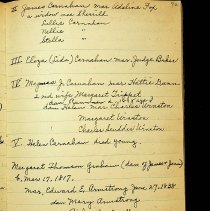 James Carnahan mar Adeline Fox
a widow nee Sherrill
Lillie Carnahan
Nellie "
Stella "
III Eloza (Lida) Carnahan mar. Judge Baker
IV J. Carnahan mar Hattie Gunn
2nd wife Margaret
dau Helen mar Charles Winston
Margaret Winston
Charles Winston
V. Helen Carnahan died young.
Margaret Thomson Graham (dau of James & Jane)
b. Mar 17, 1817.
mar. Edward E. Armstrong June 27, 1838
dau Mary Armstrong